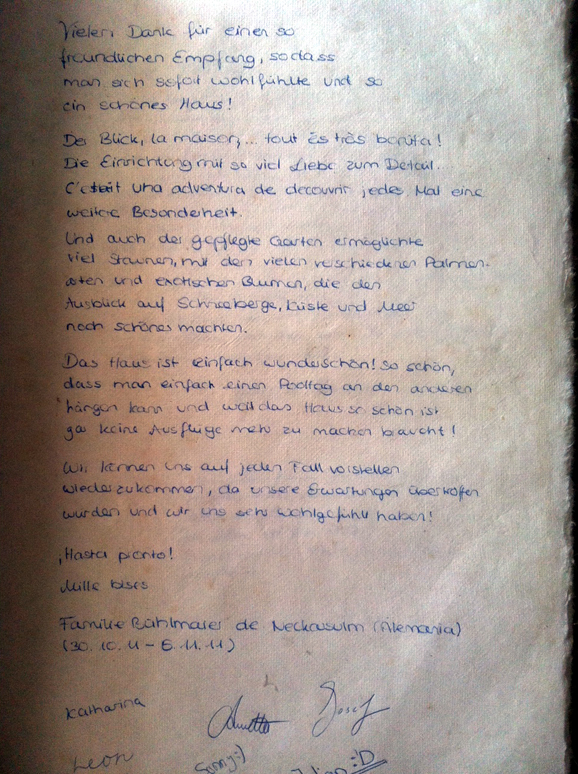 Vielen Dank für einen so
freundlichen Empfang, sodass
man sich sofort wohlfühlte und so
ein schönes Haus!
Der Blick, la maison, ... tout és très bonita!
Die Einrichtung mit so viel Liebe zum Detail.
C'etait una adventura de decouvrir jedes Mal eine
weitere Besonderheit.
Und auch der gepflegte Garten ermöglichte
viel Staunen, mit den vielen verschiedenen Palmen-
arten und exotischen Blumen, die den
Ausblick auf Schneeberge, Küste und Meer
noch schöner machten.
Das Haus ist einfach wunderschön! So schön,
dass man einfach einen Pooltag an den anderen
hängen kann und weil das Haus so schön ist
gar keine Ausflüge mehr zu machen braucht!
Wir können uns auf jeden Fall vorstellen
wiederzukommen, da unsere Erwartungen übertroffen
wurden und wir uns sehr wohlgefühlt haben!
¡Hasta pronto!
Mille bises
Familie Bühlmaier de Neckarsulm (Alemania)
(30.10.11 - 6.11.11)
Katharina Annette Josef
Leon Sunny :) :D